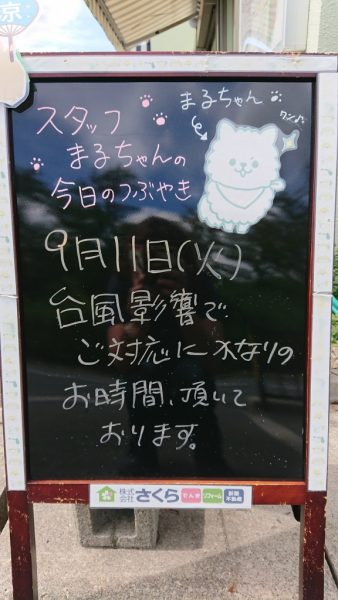 京
スタッフ
まるちゃんの
今日のつぶやき
まるちゃん
ワン♪
9月11日(火)
台風影響で
ご対応にかなりの
お時間、頂いて
おります。
株式会社 さくら でんき リフォーム 新築 不動産